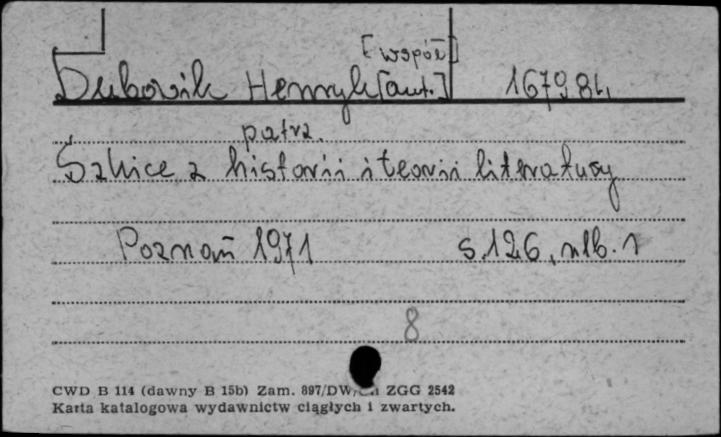 [współ]
Dubowik Henryk [aut.] 167984
patrz.
Szkice z historii i teorii literatury
Poznań 1971 s. 126, nlb. 1
8
CWD B 114 (dawny B 15b) Zam. 897/DW/ ZGG 2542
Karta katalogowa wydawnictw ciągłych i zwartych.